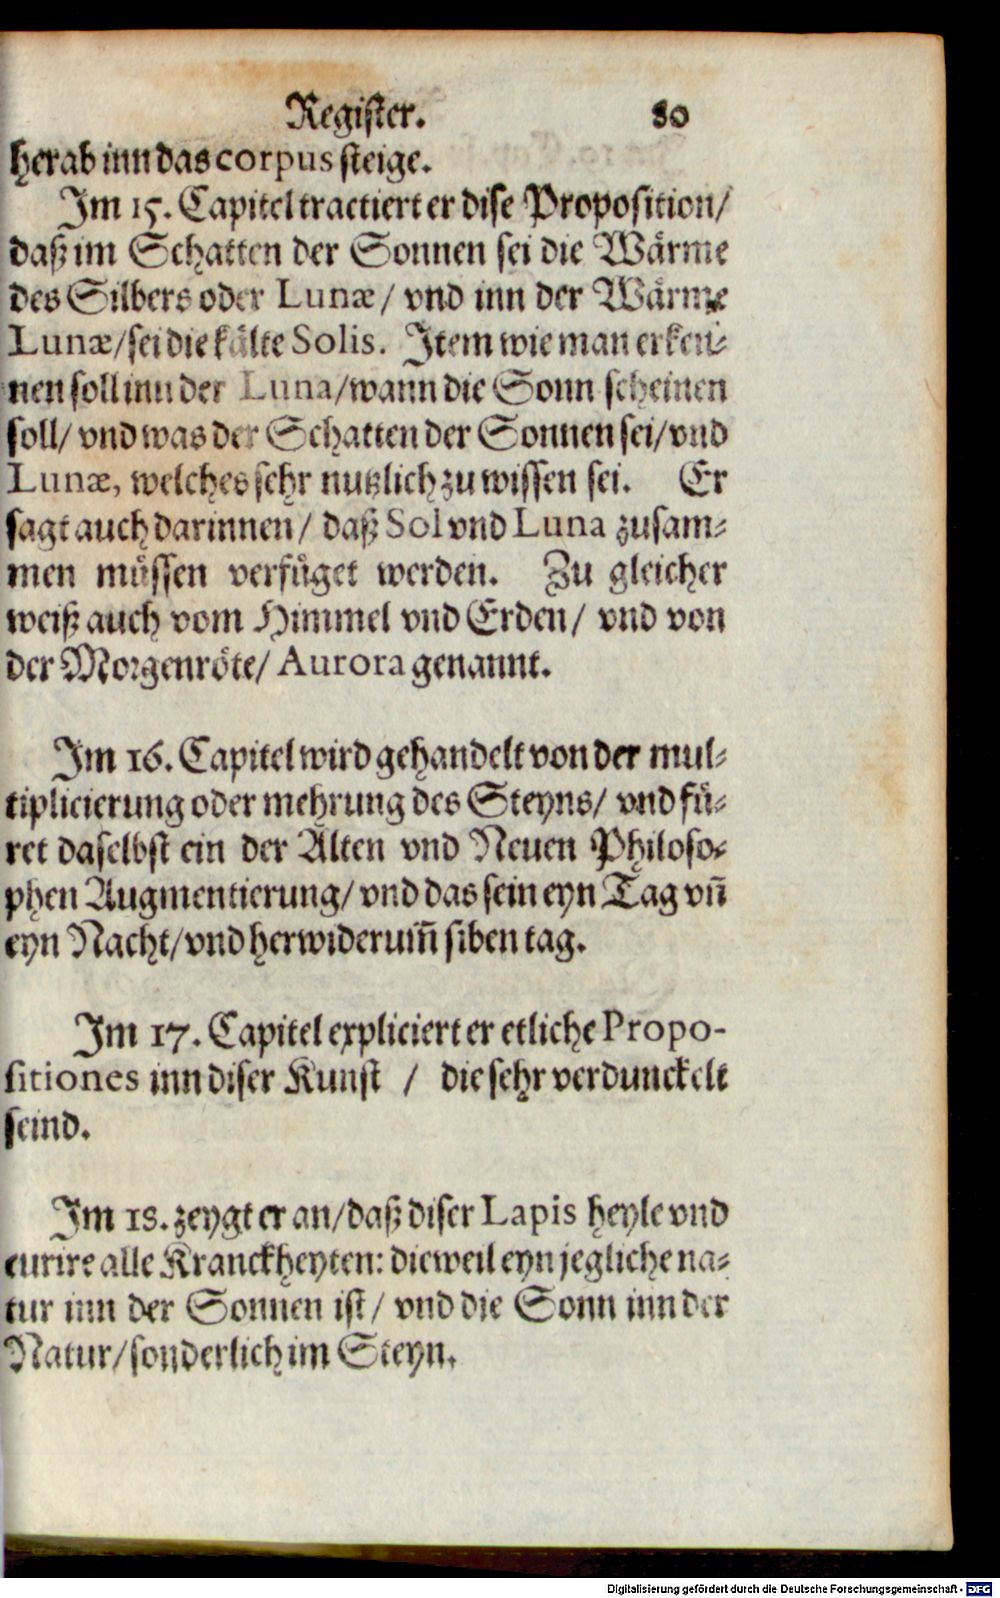 Register. 80
herab inn das corpus steige.
Im 15. Capitel tractiert er dise Proposition/
daß im Schatten der Sonnen sei die Wärme
des Silbers oder Lunæ/ vnd inn der Wärme
Lunæ/ sei die kälte Solis. Item wie man erken⸗
nen soll inn der Luna/ wann die Sonn scheinen
soll/ vnd was der Schatten der Sonnen sei/ vnd
Lunæ, welches sehr nutzlich zu wissen sei. Er
sagt auch darinnen/ daß Sol vnd Luna zusam⸗
men müssen verfüget werden. Zu gleicher
weiß auch vom Himmel vnd Erden/ vnd von
der Morgenröte/ Aurora genannt.
Im 16. Capitel wird gehandelt von der mul⸗
tiplicierung oder mehrung des Steyns/ vnd fü⸗
ret daselbst ein der Alten vnd Neuen Philoso⸗
phen Augmentierung/ vnd das sein eyn Tag vñ
eyn Nacht/ vnd herwiderum̃ siben tag.
Im 17. Capitel expliciert er etliche Propo-
sitiones inn diser Kunst / die sehr verdunckelt
seind.
Im 18. zeygt er an/ daß diser Lapis heyle vnd
curire alle Kranckheyten: dieweil eyn jegliche na⸗
tur inn der Sonnen ist/ vnd die Sonn inn der
Natur/ sonderlich im Steyn.
Digitalisierung gefördert durch die Deutsche Forschungsgemeinschaft - DFG